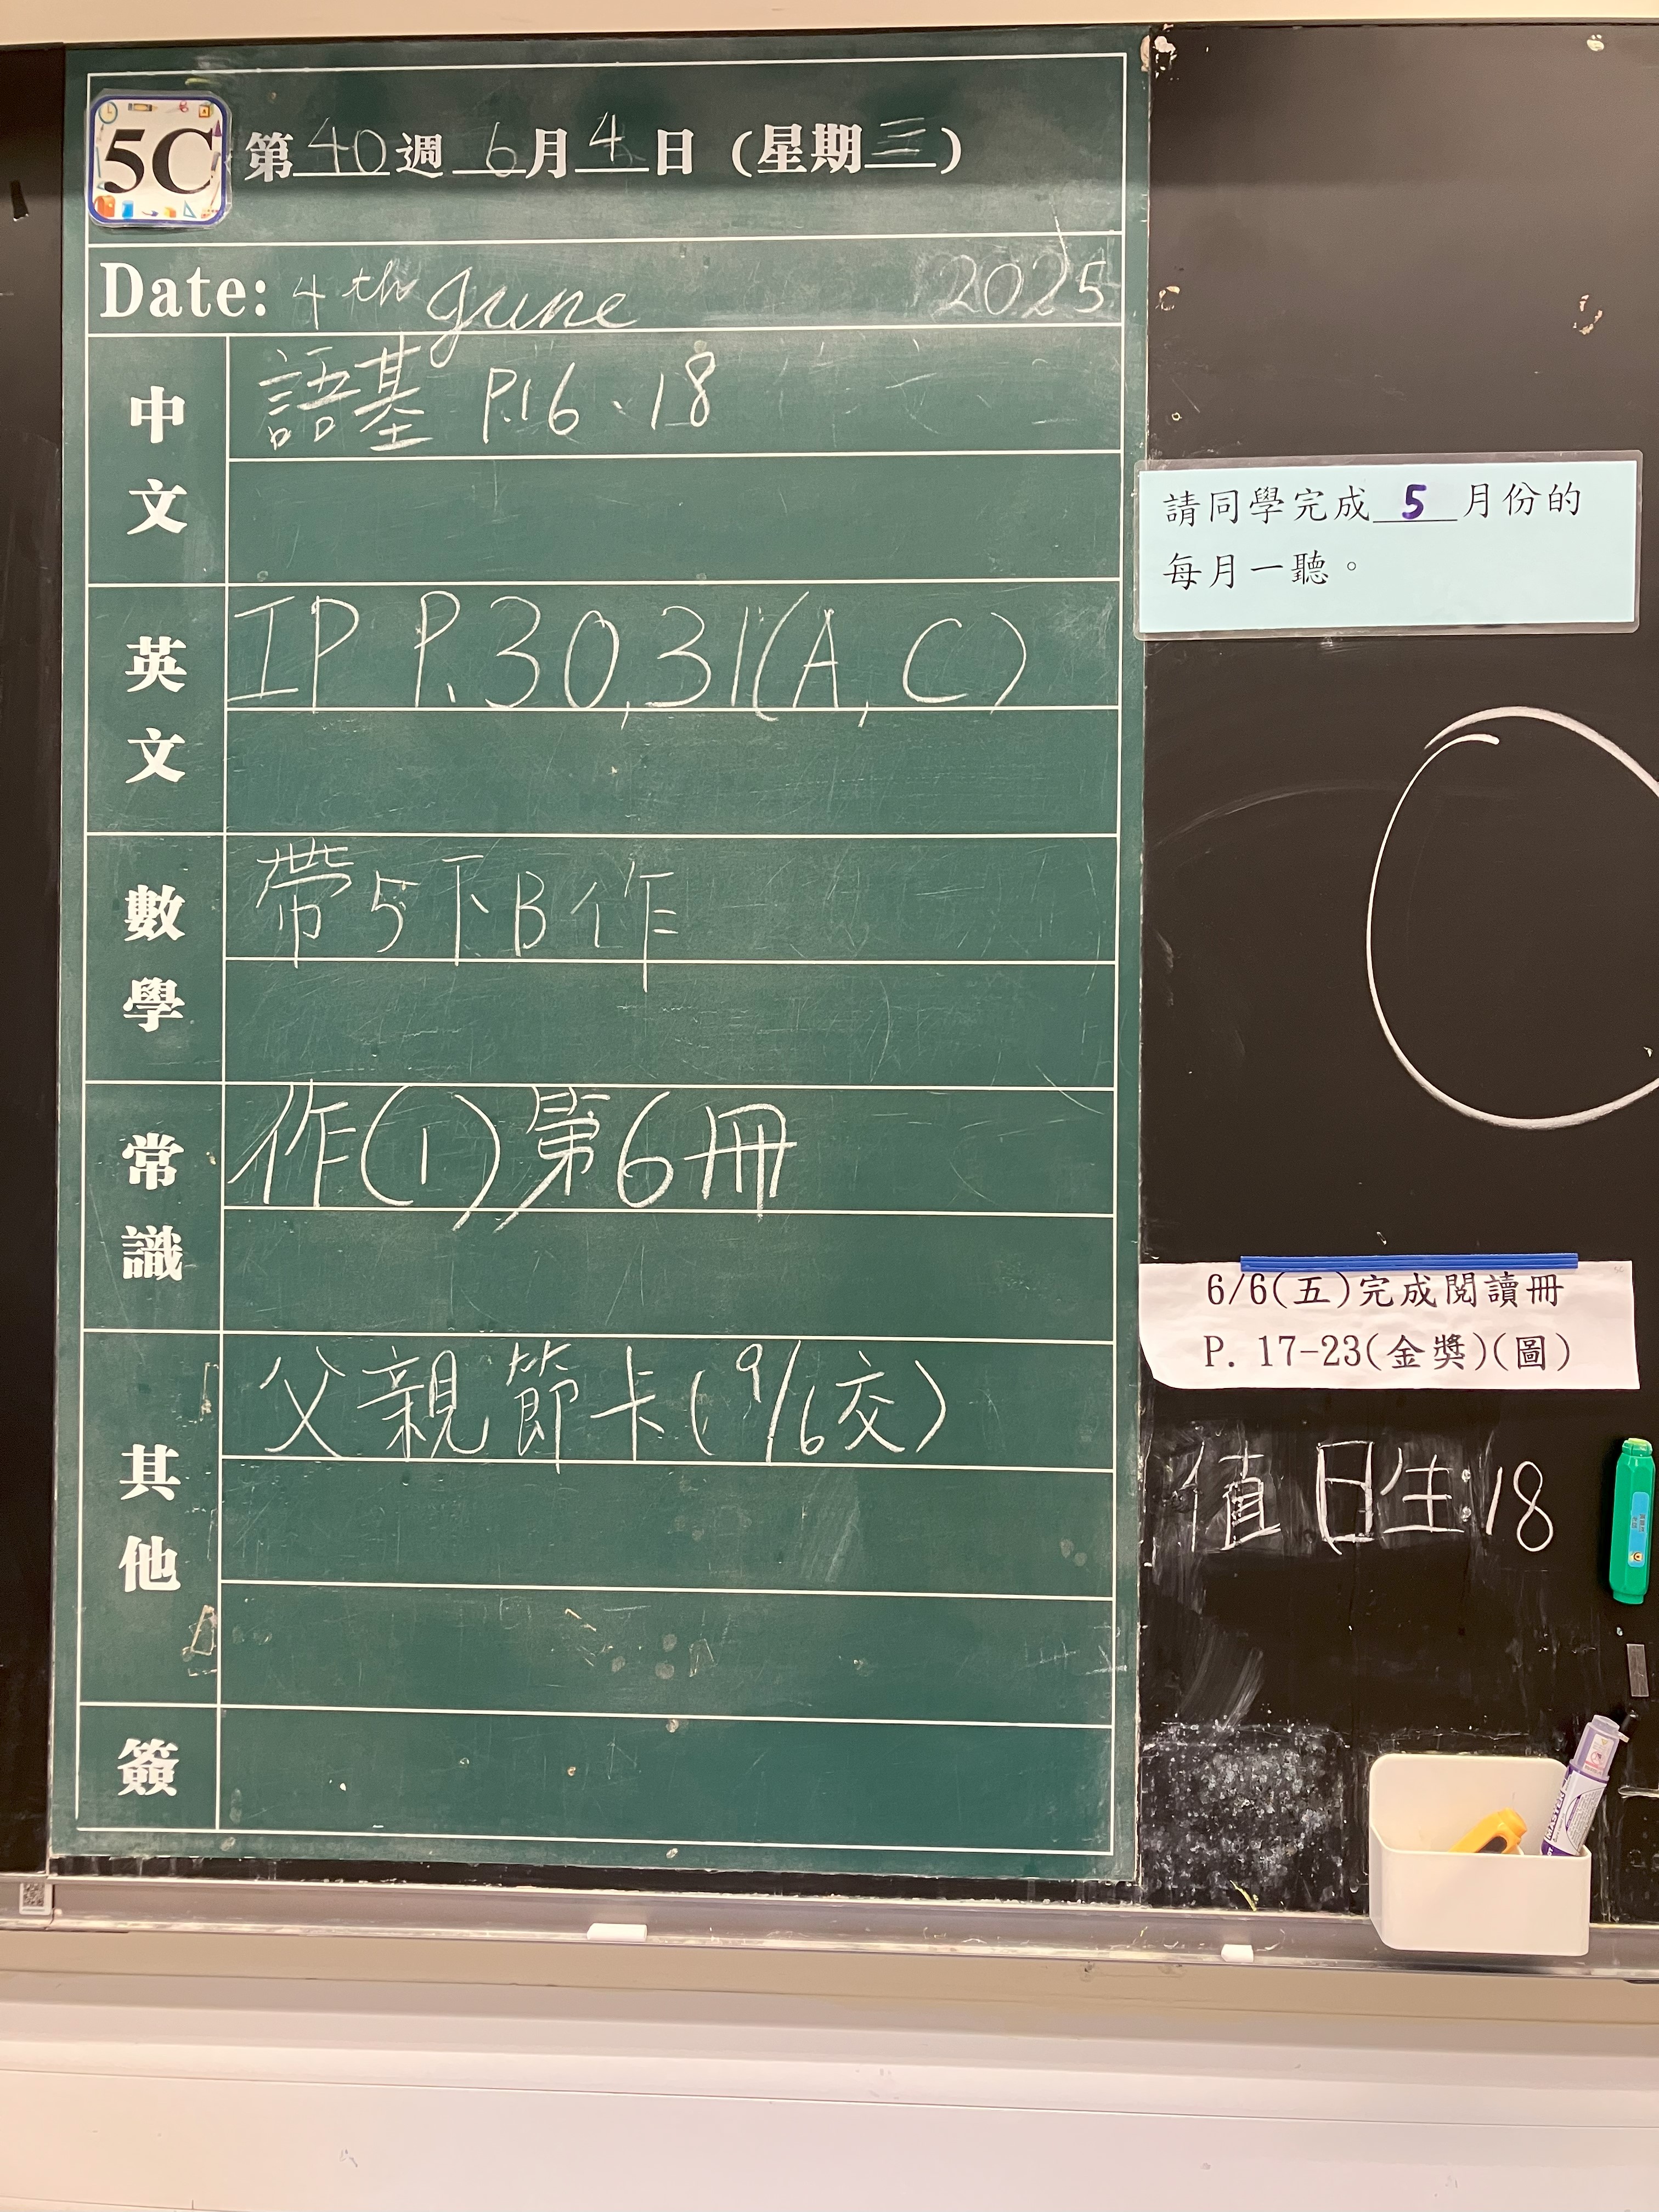 5C 第40週 6月4日 (星期三)
Date: 4th June 2025
中文
語基 P.16、18
英文
IP P.30,31(A,C)
數學
帶5下B作
常識
作(1)第6冊
其他
父親節卡(9/6交)
簽
請同學完成 5 月份的
每月一聽。
6/6(五)完成閱讀冊
P. 17-23(金獎)(圖)
值日生:18
MASTER